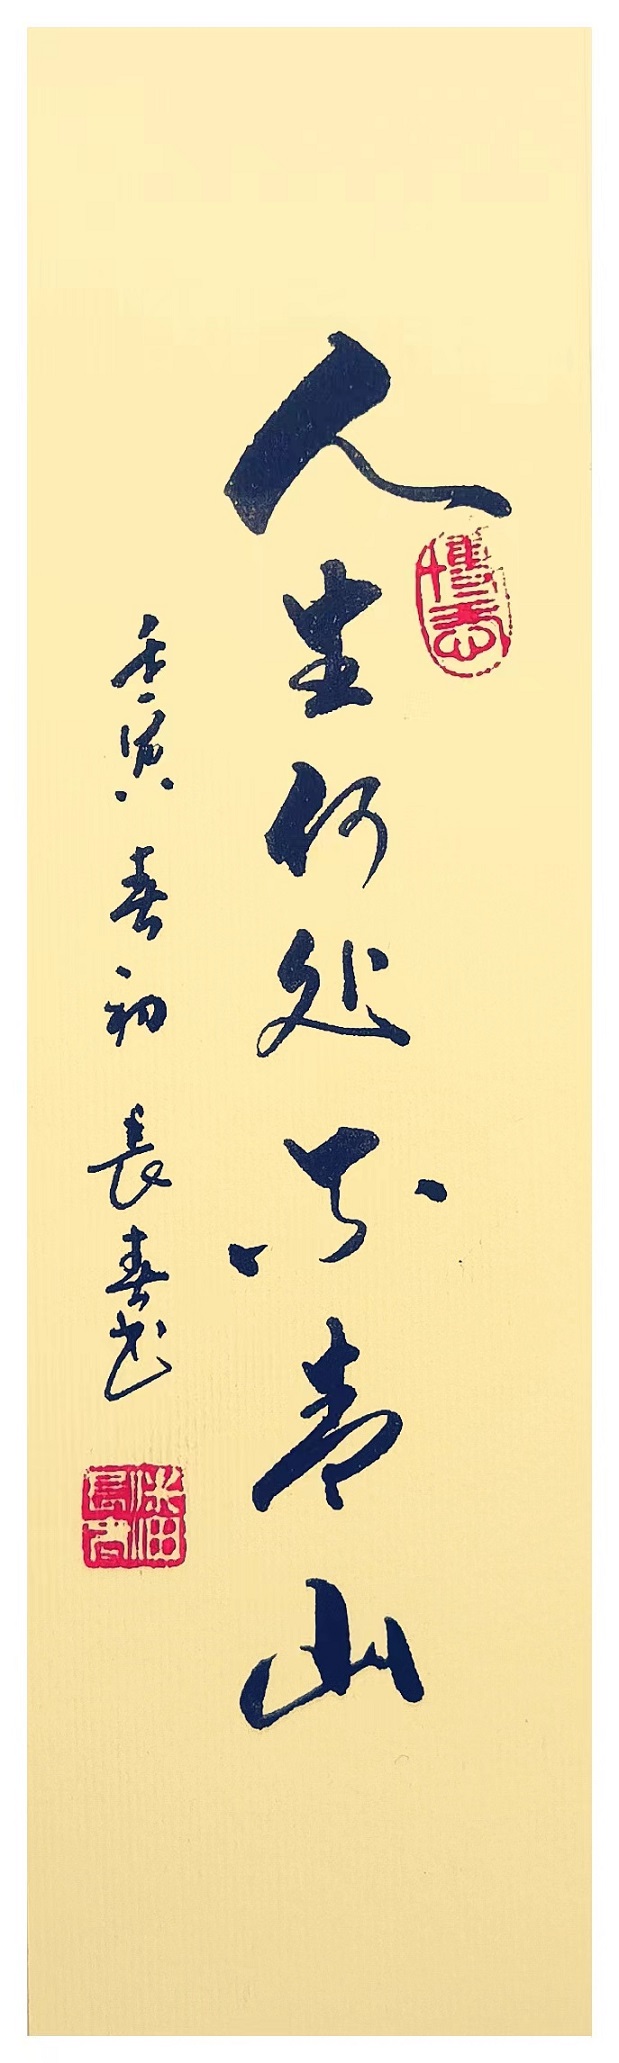 人生何処不青山
壬寅春初 長春书